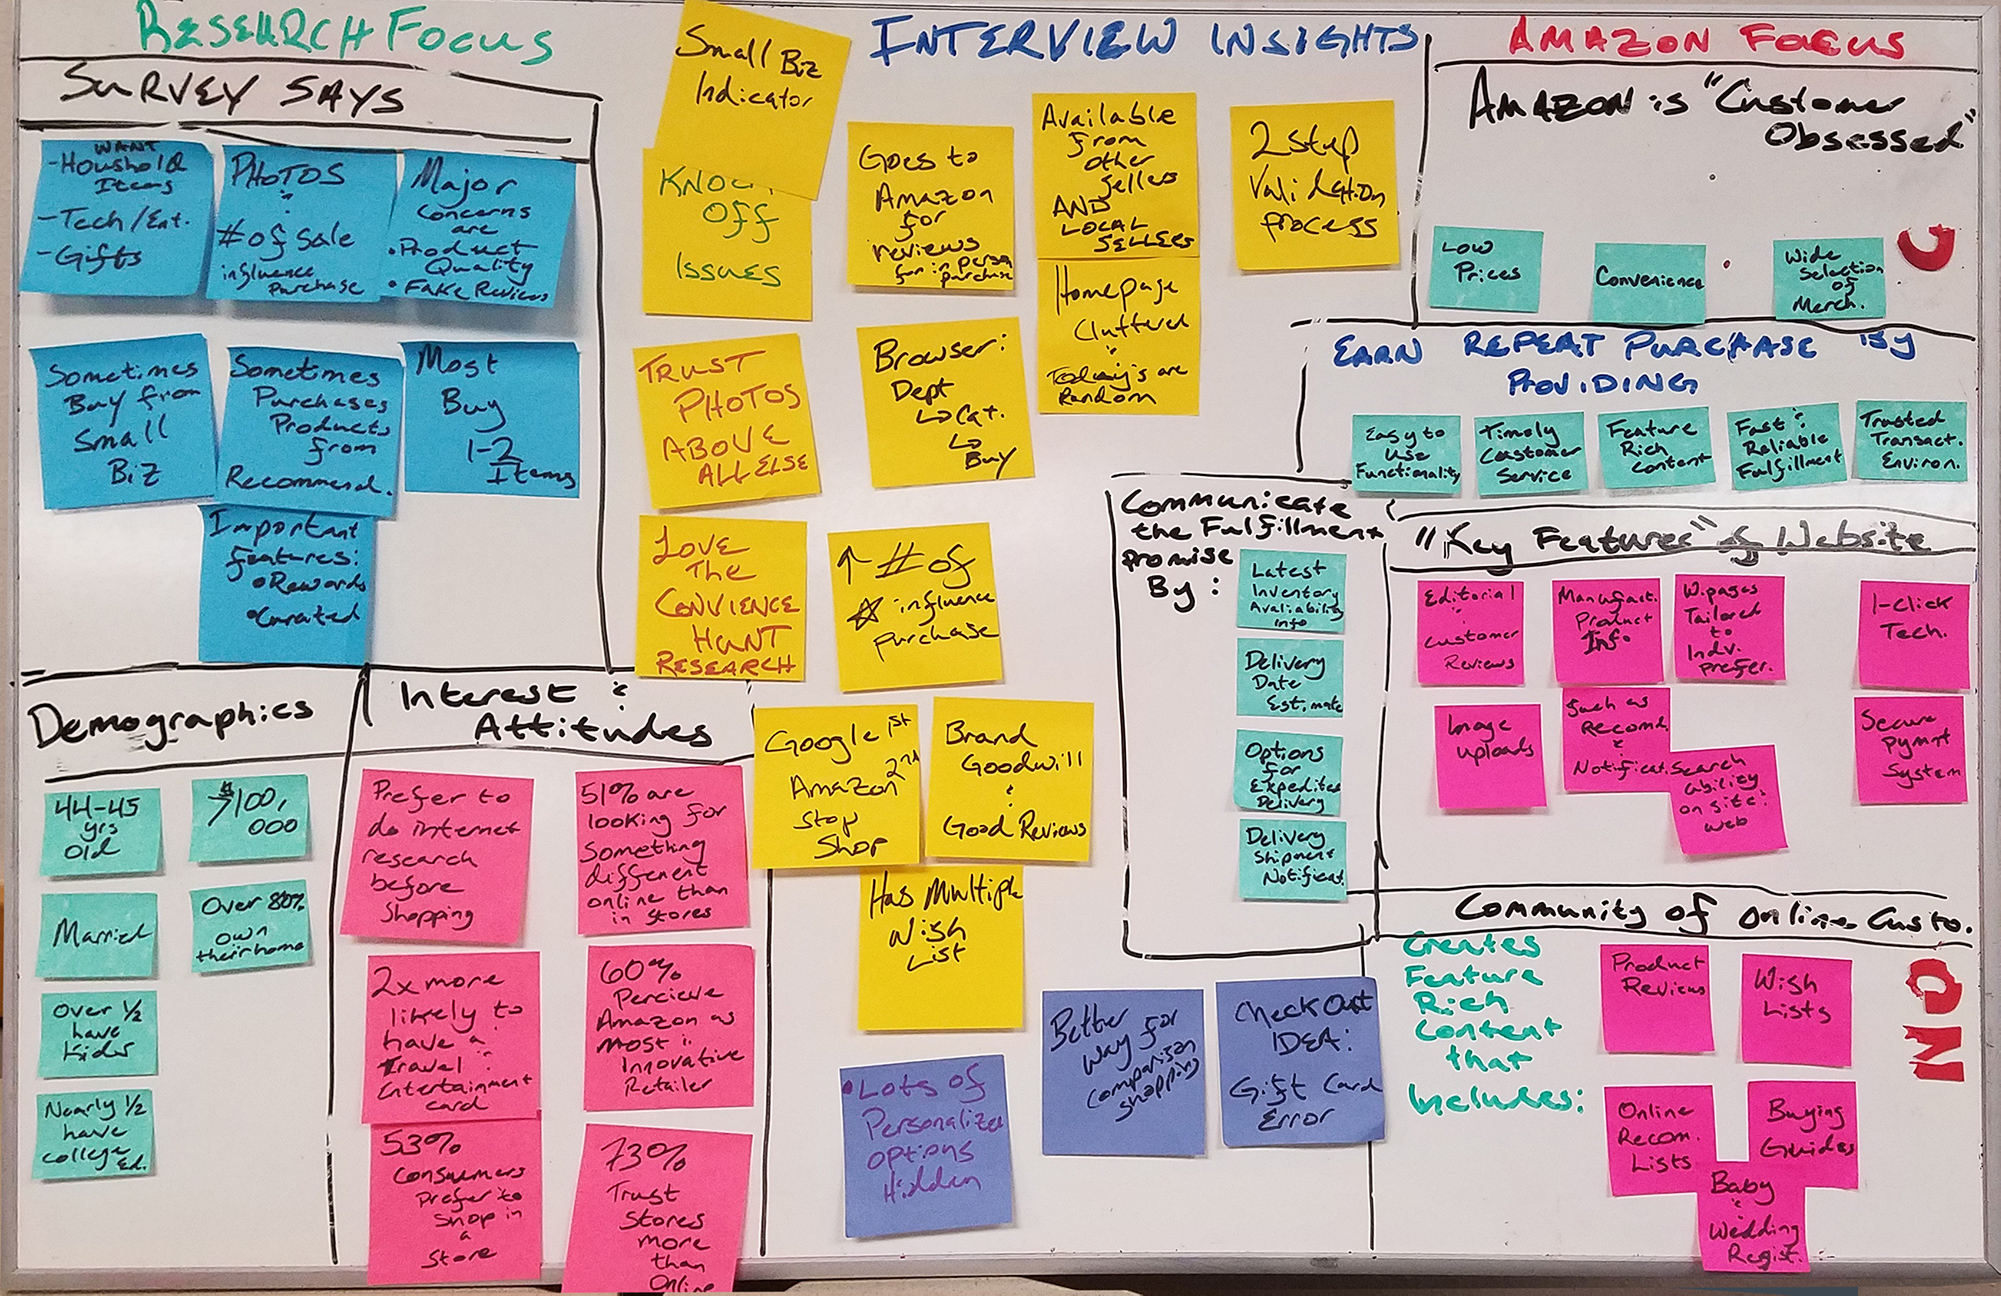 RESEARCH FOCUS
SURVEY SAYS
WANT
-Houshold
Items
-Tech/Ent.
-Gifts
PHOTOS
&
# of sale
influence
purchase
Major
Concerns
are
•Product
Quality
•Fake Reviews
Sometimes
Buy from
Small
Biz
Sometimes
Purchases
Products
from
Recommend.
Most
Buy
1-2
Items
Important
features:
•Rewards
•Curated
Demographics
44-45
yrs
old
>$100,
000
Married
Over 80%
own
their home
Over 1/2
have
kids
Nearly 1/2
have
college
Ed.
Interest &
Attitudes
Prefer to
do internet
research
before
Shopping
51% are
looking for
Something
different
online than
in stores
2x more
likely to
have a
travel &
Entertainment
card
60%
Percieve
Amazon as
most &
Innovative
Retailer
53%
Consumers
Prefer to
Shop in
a
Store
73%
Trust
Stores
more
than
Online
INTERVIEW INSIGHTS
Small Biz
Indicator
KNOCK
OFF
ISSUES
TRUST
PHOTOS
ABOVE
ALL ELSE
LOVE
THE
CONVIENCE
HUNT
RESEARCH
Goes to
Amazon
for
reviews
for in person
purchase
Available
from
other
sellers
AND
LOCAL
SELLERS
2 step
Validation
process
Browser:
Dept
↳Cat.
↳
Buy
Homepage
Cluttered
&
Today's are
Random
↑ # of
☆ influence
purchase
Google 1st
Amazon 2nd
Stop
Shop
Brand
Goodwill
&
Good Reviews
Has Multiple
Wish
List
•Lots of
Personalized
options
Hidden
Better
way for
comparison
shopping
Check Out
IDEA:
Gift Card
Error
AMAZON FOCUS
AMAZON is "Customer
Obsessed"
Low
Prices
Convenience
Wide
Selection
of
Merch.
EARN REPEAT PURCHASE BY
PROVIDING
Easy to
Use
Functionality
Timely
Customer
Service
Feature
Rich
Content
Fast &
Reliable
Fulfillment
Trusted
Transact.
Environ.
Communicate
the Fulfillment
promise
By:
Latest
Inventory
Avaliability
Info
Delivery
Date
Estimate
Options
for
Expedited
Delivery
Delivery
Shipment
Notificat.
"Key Features" of Website
Editorial
&
customer
Reviews
Manufact.
Product
Info
W.pages
Tailored
to
Indv.
prefer.
1-Click
Tech.
Image
uploads
Such as
Recomd.
&
Notificat.
Search
ability
on site &
web
Secure
Pymnt
System
Community of Online Custo.
Creates
Feature
Rich
Content
that
includes:
Product
Reviews
Wish
Lists
Online
Recom.
Lists
Buying
Guides
Baby
&
Wedding
Regist.